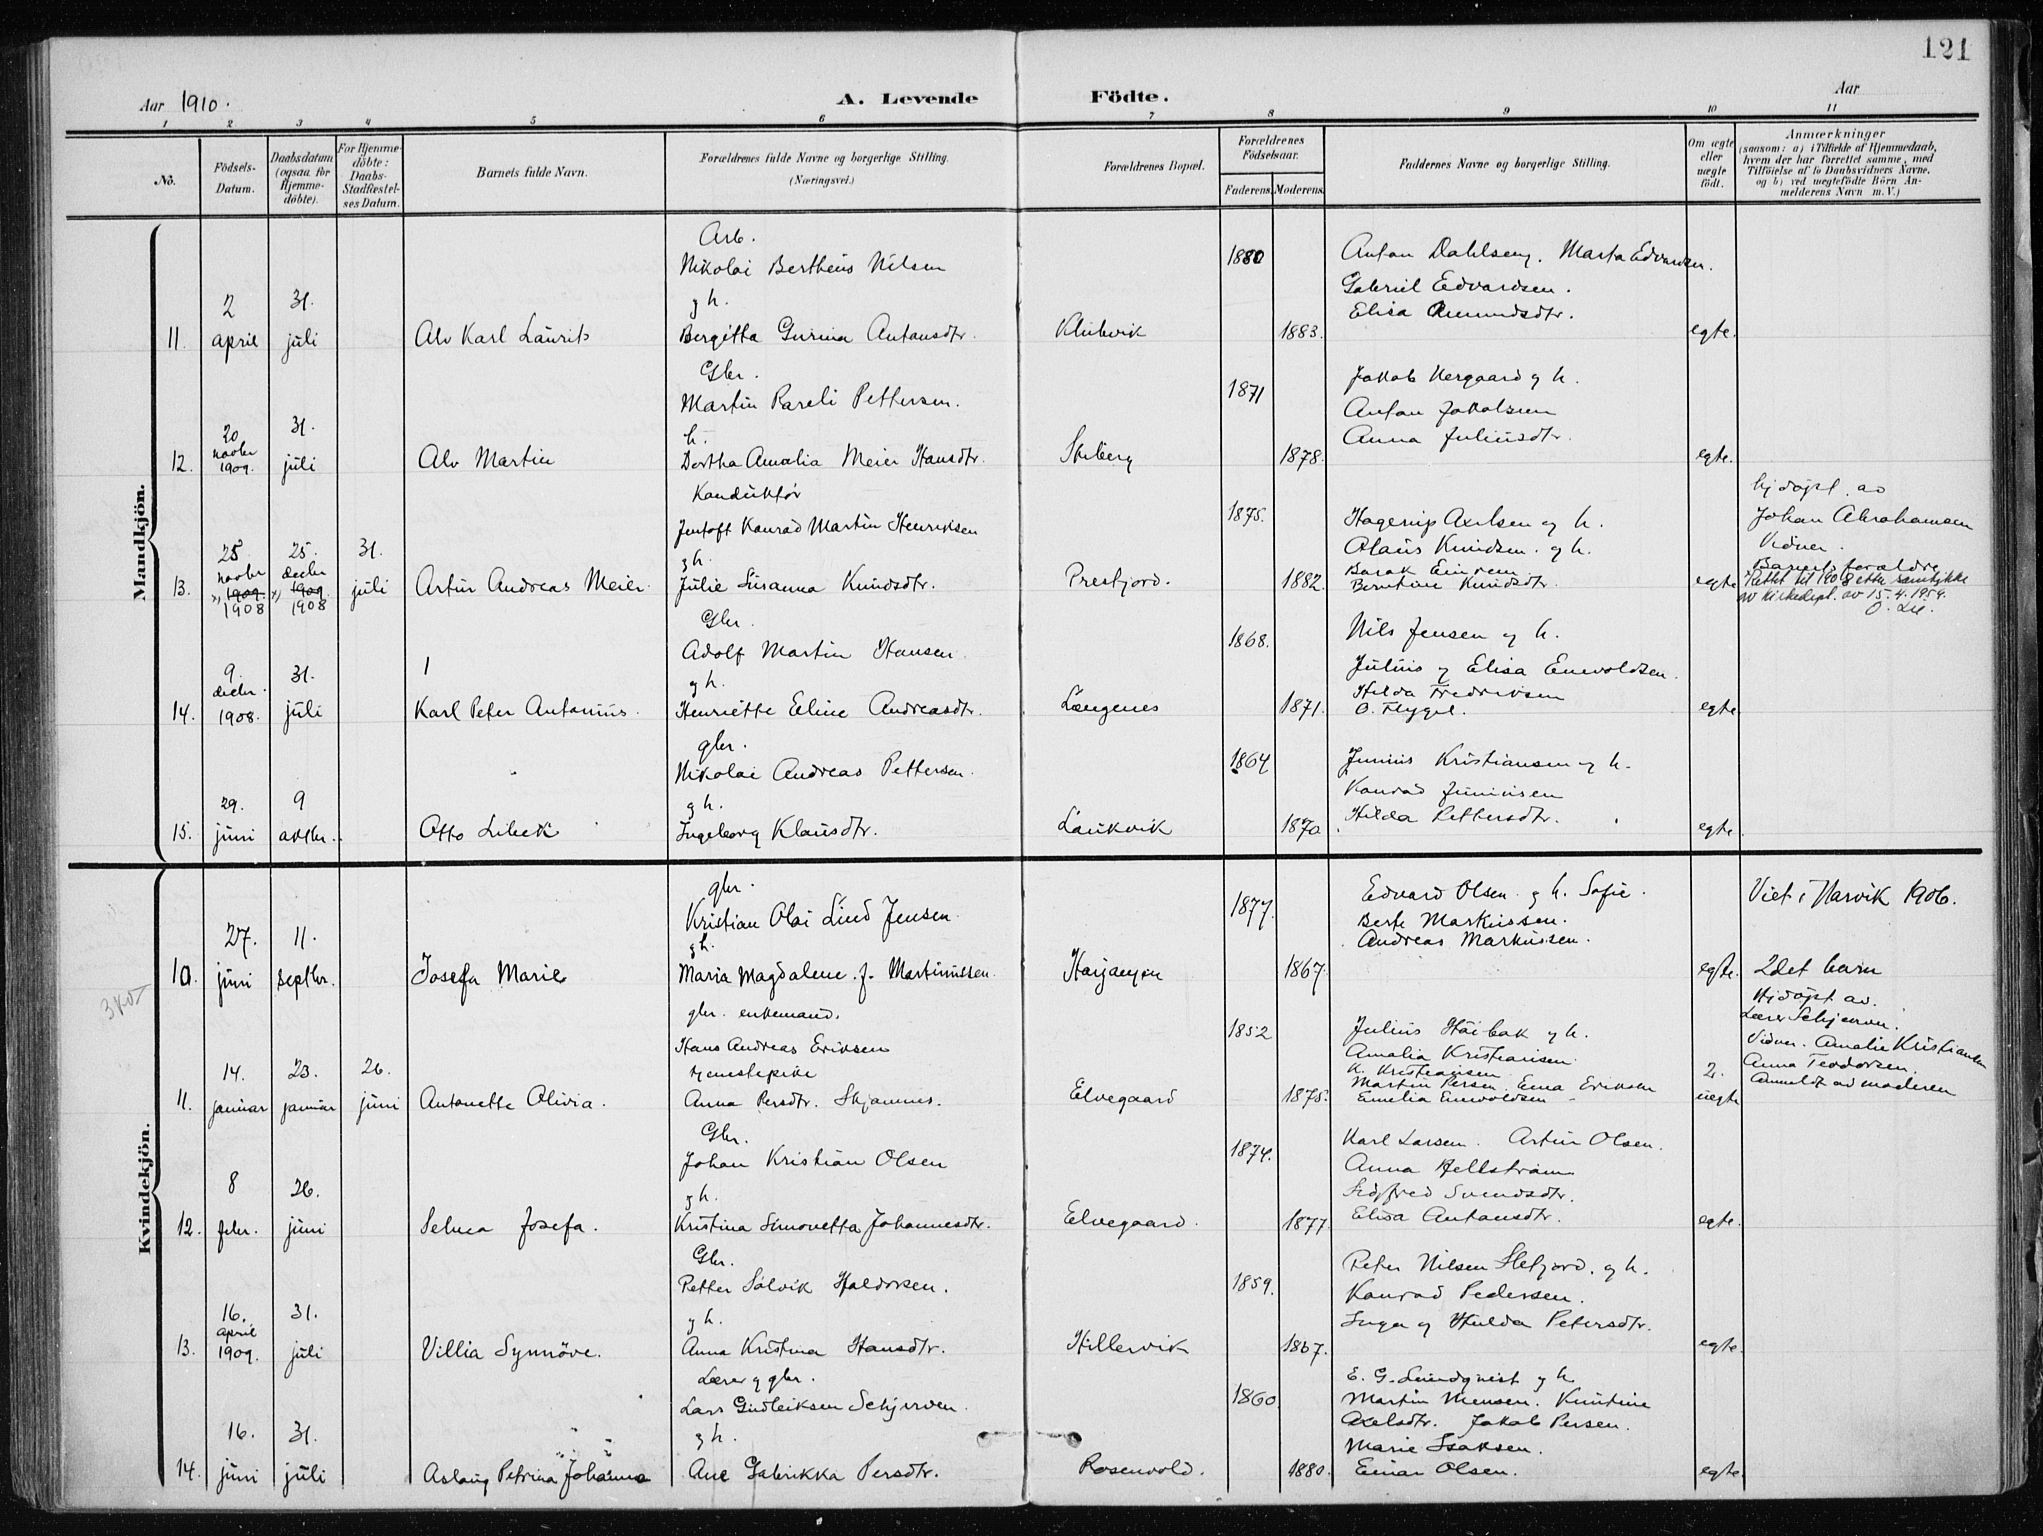 121
Aar 1910.
A. Levende Födte.
Aar
1 2 3 4 5 6 7 8 9 10 11
No.
Födsels-Datum.
Daabsdatum (ogsaa for Hjemmedöbte).
For Hjemmedöbte: Daabs-Stadfæstelses Datum.
Barnets fulde Navn.
Forældrenes fulde Navne og borgerlige Stilling.
(Næringsvei.)
Forældrenes Bopæl.
Forældrenes Födselsaar.
Faderens. Moderens.
Faddernes Navne og borgerlige Stilling.
Om ægte eller uægte födt.
Anmærkninger
(saasom: a) i Tilfælde af Hjemmedaab,
hvem der har forrettet samme, med
Tilföielse af to Daabsvidners Navne.
og b) ved uægtefödte Börn An-
melderens Navn m. V.)
Mandkjön.
Arb.
Nikolai Bertheus Nilsen
g h.
Bergitta Gurina Antonsdtr.
11. 2 april 31. juli
Alv Karl Laurits
Klubvik
1880
1883.
Anton Dahlseng. Marta Edvardsen.
Gabriel Edvardsen.
Elisa Amundsdtr.
egte.
Gbr.
Martin Pareli Pettersen.
h.
Dortha Amalia Meier Hansdtr.
12. 20 novbr 1909. 31. juli
Alv Martin
Stiberg
1871
1878.
Jakob Hergaard g h.
Anton Jakobsen
Anna Juliusdtr.
egte.
Konduktør
Jentoft Konrad Martin Henriksen
g h.
Julie Susanna Knudsdtr.
13. 25 novbr x) 1909. 1908 25. decbr x) 1909. 1908 31. juli
Artur Andreas Meier.
Prestjord.
1875.
1882.
Hagerup Axelsen og h.
Olaus Knudsen. g h.
Berntine Knudsdtr.
egte
hjdøpt. av
Johan Abrahamsen
Vidner.
Barnets foraldre
Rettet til 1908 etter samtykke
av kirkedept. av 15.4.1954.
O. Lie.
Gbr.
Adolf Martin Hansen.
g h.
Henriette Eline Andreasdtr.
14. 9. decbr. 1908. 31. juli
Karl Peter Antonius.
Langenes
1868.
1871.
Nils Jensen og h.
Julius g Elisa Enevoldsen.
Hilda Fredriksen
O. Flygel.
egte
gbr.
Nikolai Andreas Pettersen.
g h.
Ingeborg Klausdtr.
15. 29. juni 9 oktbr.
Otto Libek
Laukvik
1864
1870.
Junius Kristiansen og h.
Konrad Juniusen
Hilda Pettersdtr.
egte.
Kvindekjön.
gbr.
Kristian Olai Lind Jensen.
g h.
Maria Magdalene f. Martinussen.
10. 27. juni 11. septbr.
Josefa Marie
1877.
1867.
Edvard Olsen g h. Sofie.
Berte Markussen.
Andreas Markussen.
egte.
Viet i Narvik 1906.
2det barn
gbr. enkemand.
Hans Andreas Eriksen
tjenestepike
Anna Persdtr. Skjomnes.
11. 14. januar 23. januar 26. juni
Antonette Olivia.
Elvegaard
1852
1875.
Julius Høibak g h.
Amalia Kristiansen.
K. Kristiansen
Martin Persen. Ema Eriksen
Emelia Enevoldsen
2. uegte
Hjdøpt av.
Lærer Schjerven.
Vidner. Amalie Kristiansen
Anna Teodorsen.
Anmeldt av moderen
Gbr.
Johan Kristian Olsen
g h.
Kristina Simonetta Johannesdtr.
12. 8 febr. 26. juni
Selma Josefa.
Elvegaard.
1874.
1877
Karl Larsen. Artur Olsen.
Anna Hellstrøm
Sigfred Svendsdtr.
Elisa Antonsdtr.
egte.
Gbr.
Petter Solvik Haldorsen.
g h.
Anna Kristina Hansdtr.
13. 16. april 1909. 31. juli
Villia Synnöve.
Hillervik
1859.
1867.
Peter Nilsen Sletjord. og h.
Konrad Pedersen.
Inga g Hulda Petersdtr.
egte.
Lærer g gbr.
Lars Gudleiksen Schjerven.
g h.
Ane Gabrikka Persdtr.
14. 16. juni 31. juli
Aslaug Petrina Johanna
Rosenvold.
1860
1880.
E. G. Lundqvist g h.
Martin Monsen. Kristine
Axelsdtr. Jakob Persen.
Marie Isaksen.
Einar Olsen.
egte.